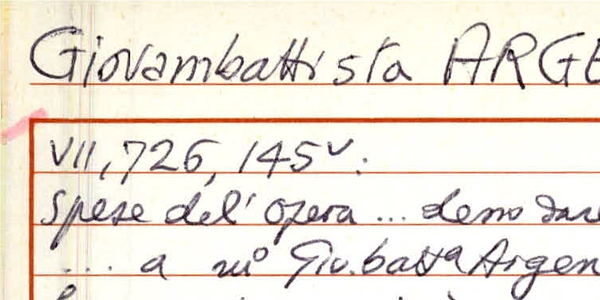 Giovambattista ARGE
VII, 726, 145v.
Spese del' opera ... deno dare
... a mº Giv.batta Argen